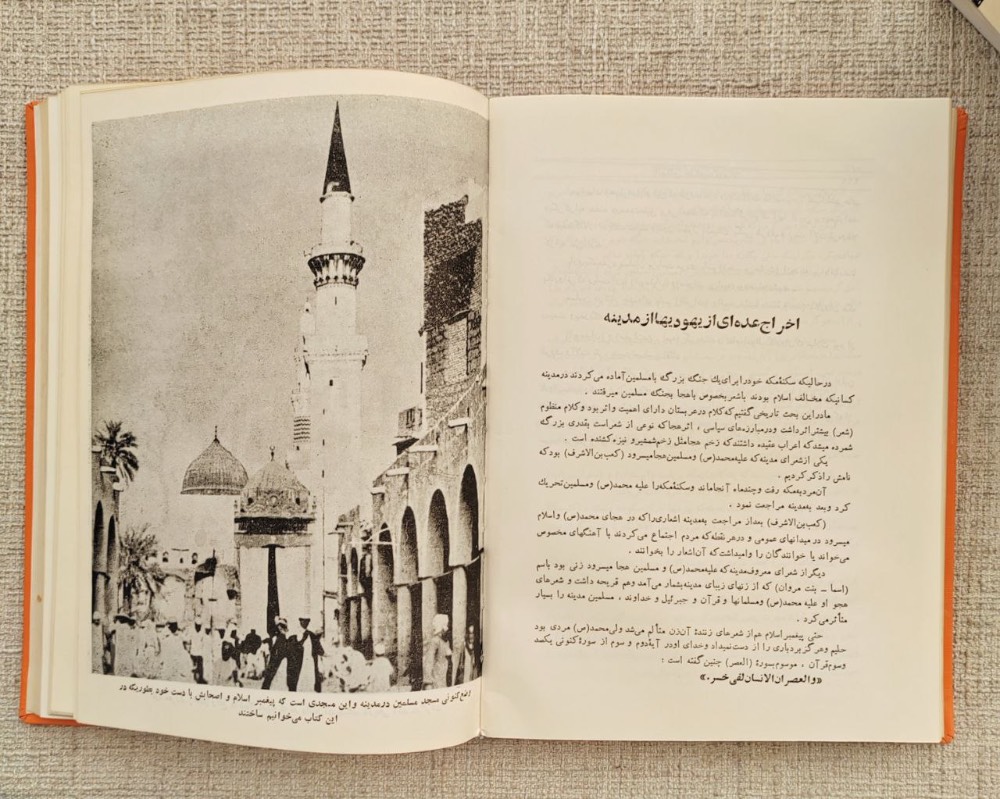 اخراج عده‌ای از یهودیها از مدینه
درحالیکه سکنهٔ مکه خود را برای یك جنگ بزرگ با مسلمین آماده می‌کردند در مدینه
کسانیکه مخالف اسلام بودند باشعر بخصوص باهجا بجنگ مسلمین میرفتند .
ما در این بحث تاریخی گفتیم که کلام در عربستان دارای اهمیت و اثر بود و کلام منظوم
(شعر) بیشتر اثر داشت و در مبارزه‌های سیاسی ، اثر هجا که نوعی از شعر است بقدری بزرگ
شمرده میشد که اعراب عقیده داشتند که زخم هجا مثل زخم شمشیر و نیزه کشنده است .
یکی از شعرای مدینه که علیه محمد (ص) و مسلمین هجا میسرود (کعب بن الاشرف) بود که
نامش را ذکر کردیم .
آن مرد به مکه رفت و چند ماه آنجا ماند و سکنهٔ مکه را علیه محمد (ص) و مسلمین تحریك
کرد و بعد به مدینه مراجعت نمود .
(کعب بن الاشرف) بعد از مراجعت به مدینه اشعاری را که در هجای محمد (ص) و اسلام
میسرود در میدانهای عمومی و در هر نقطه که مردم اجتماع می‌کردند با آهنگهای مخصوص
می‌خواند یا خوانندگان را وامیداشت که آن اشعار را بخوانند .
دیگر از شعرای معروف مدینه که علیه محمد (ص) و مسلمین هجا میسرود زنی بود باسم
(اسما ــ بنت مروان) که از زنهای زیبای مدینه بشمار می‌آمد و هم قریحه داشت و شعرهای
هجو او علیه محمد (ص) و مسلمانها و قرآن و جبرئیل و خداوند ، مسلمین مدینه را بسیار
متأثر می‌کرد .
حتی پیغمبر اسلام هم از شعرهای زنندهٔ آن زن متألم می‌شد ولی محمد (ص) مردی بود
حلیم و هرگز بردباری را از دست نمیداد و خدای او در آیه دوم و سوم از سورهٔ کنونی یکصد
و سوم قرآن ، موسوم بسورهٔ (العصر) چنین گفته است :
«والعصر ان الانسان لفی خسر .»
وضع کنونی مسجد مسلمین در مدینه و این مسجدی است که پیغمبر اسلام و اصحابش با دست خود بطوریکه در
این کتاب می‌خوانیم ساختند